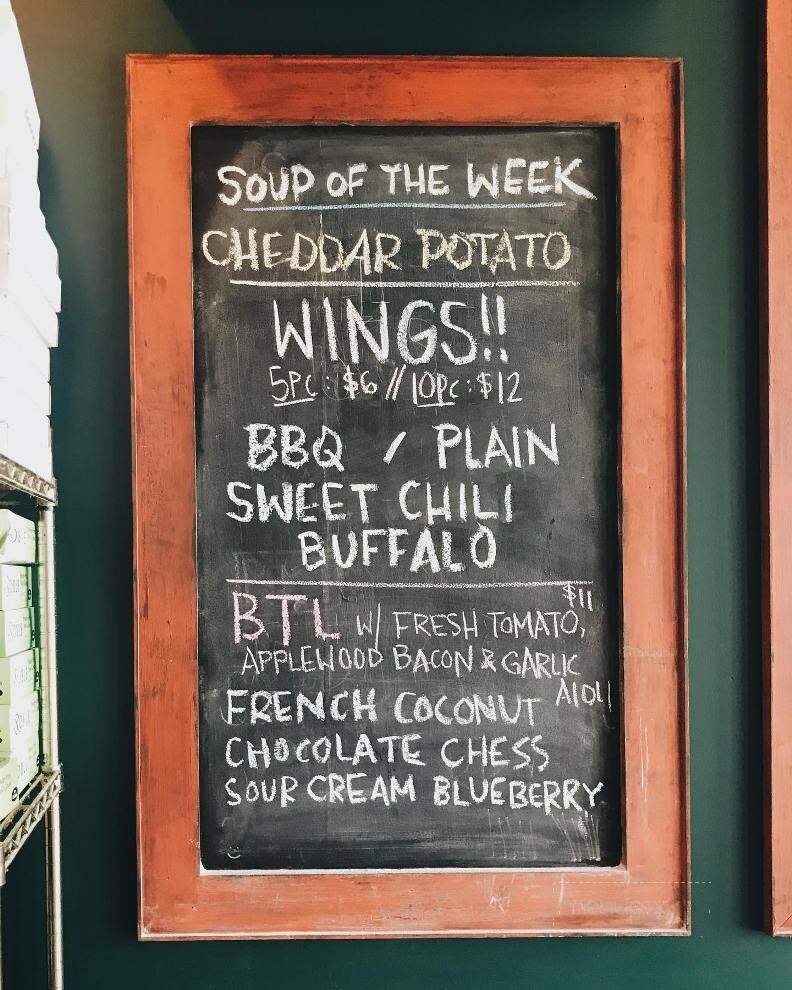 SOUP OF THE WEEK
CHEDDAR POTATO
WINGS!!
5PC: $6 // 10PC: $12
BBQ / PLAIN
SWEET CHILI
BUFFALO
$11
BTL W/ FRESH TOMATO,
APPLEWOOD BACON & GARLIC
AIOLI
FRENCH COCONUT
CHOCOLATE CHESS
SOUR CREAM BLUEBERRY